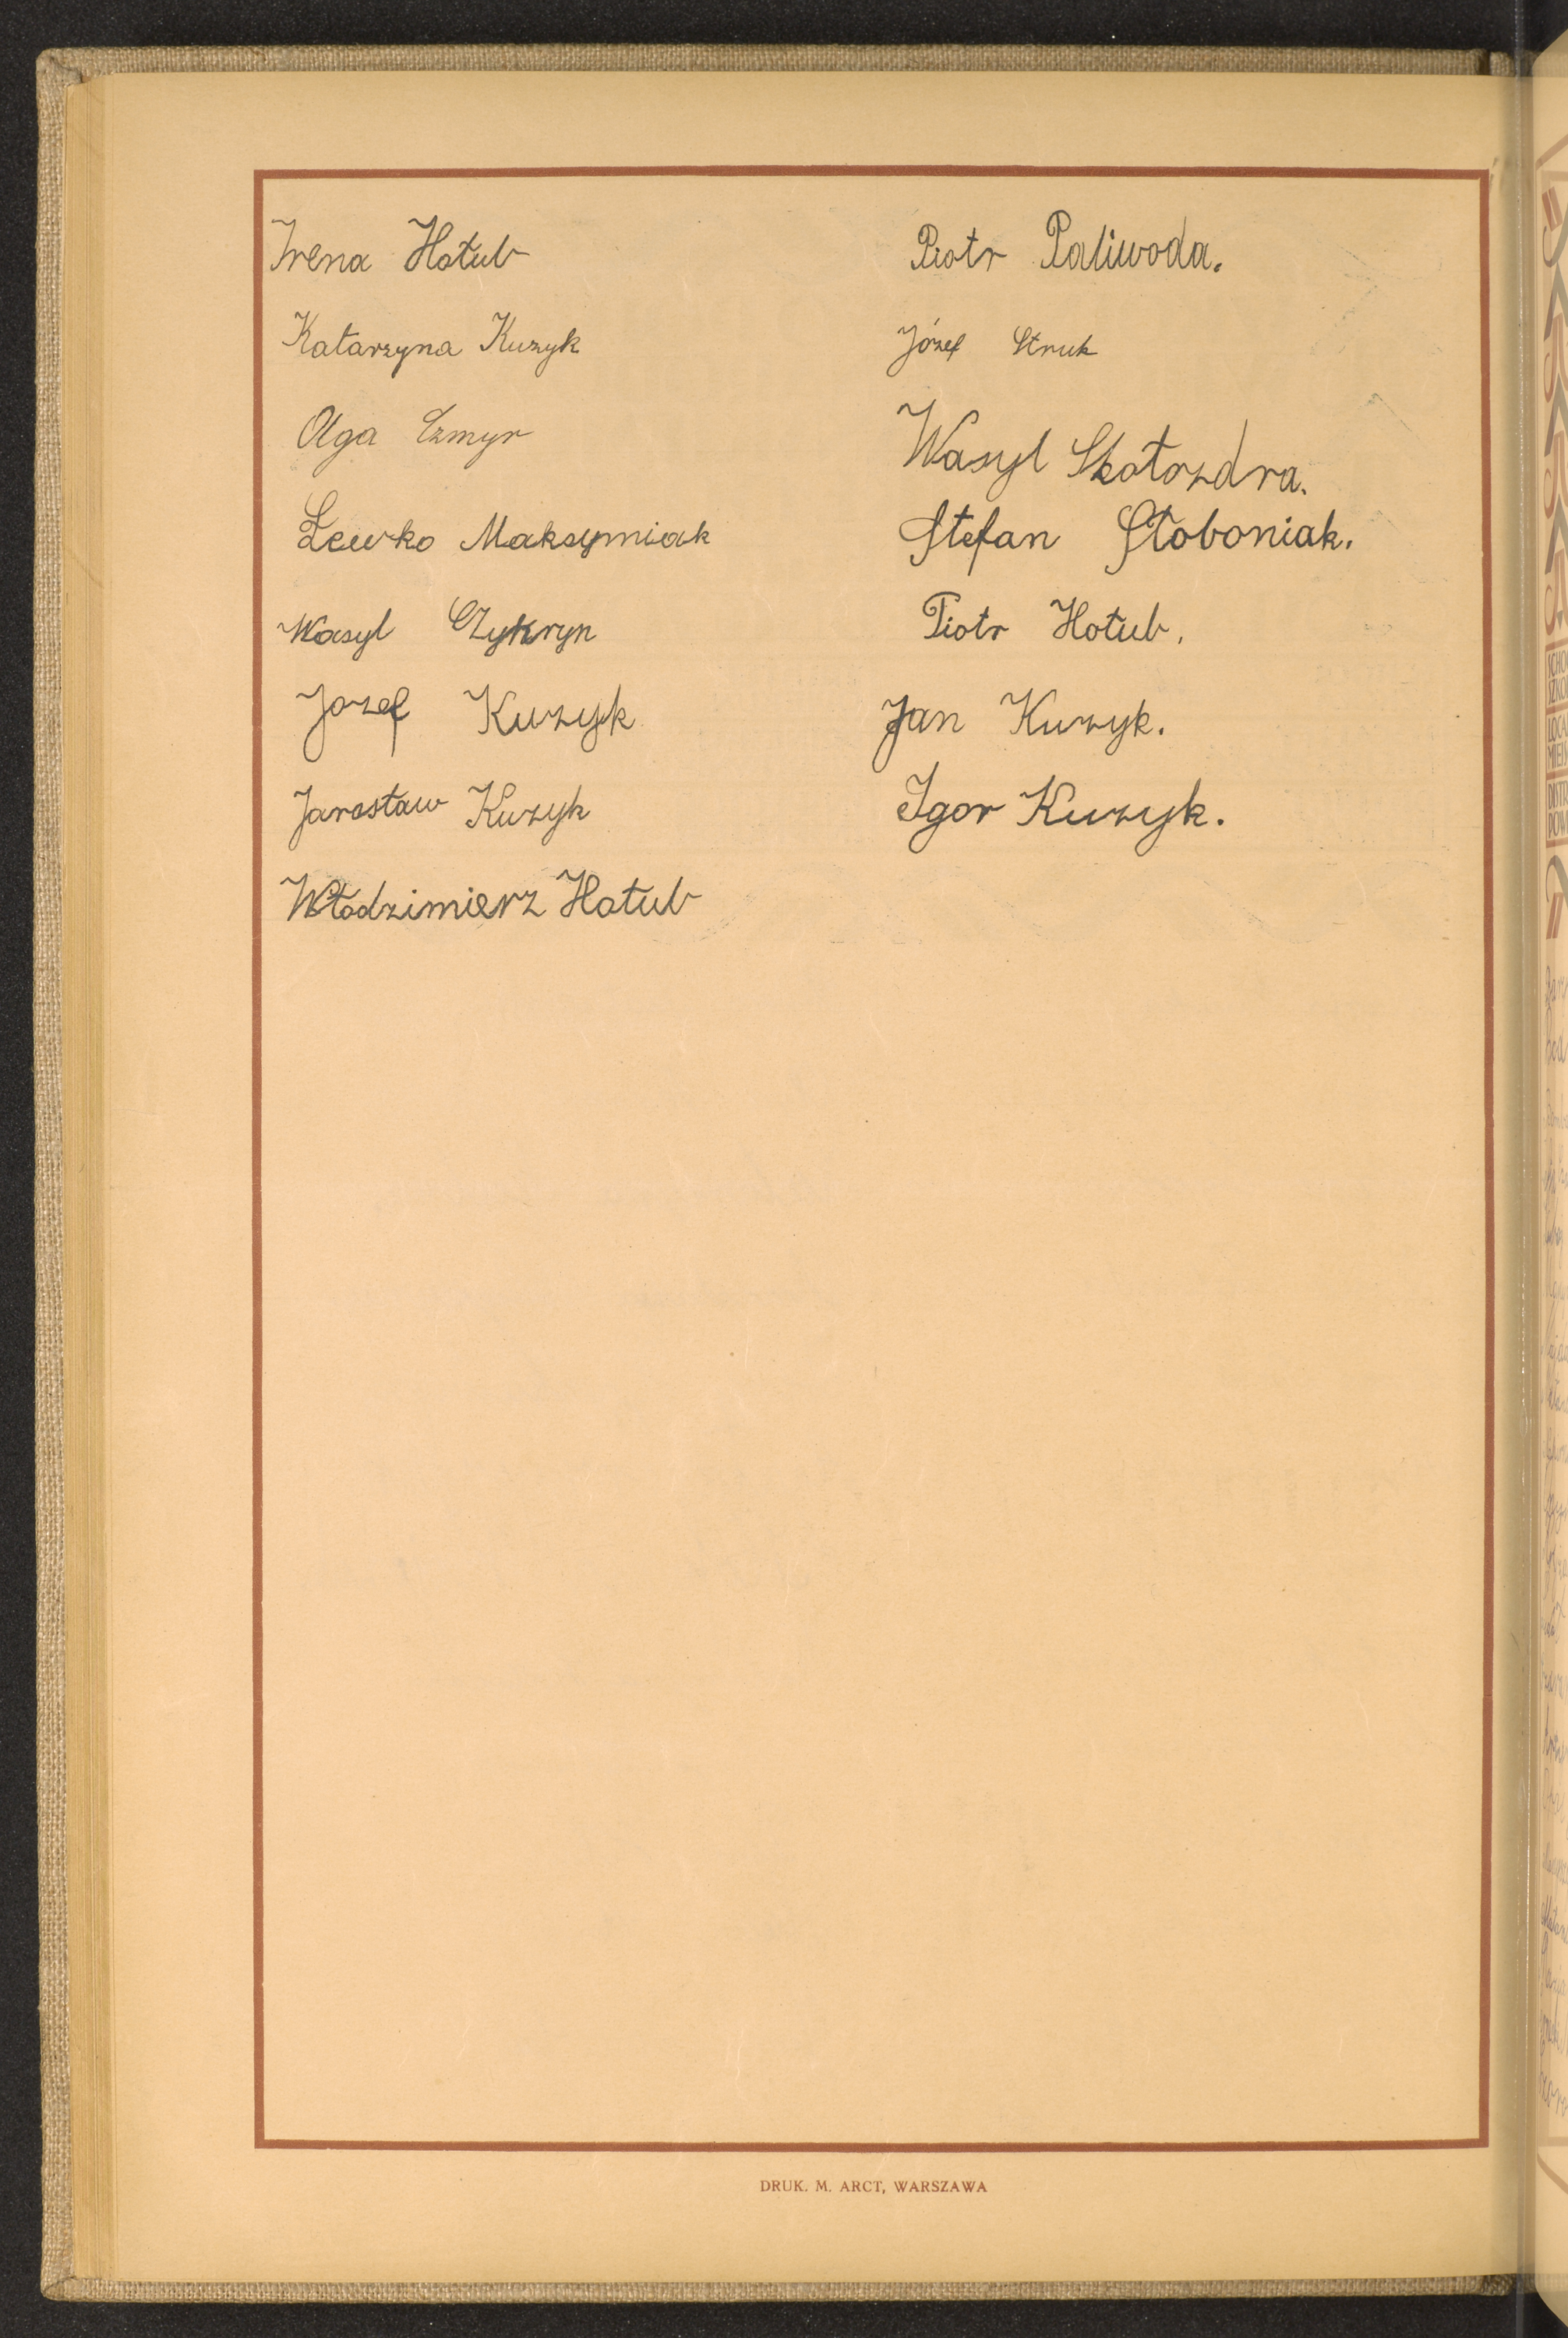 Irena Hołub
Katarzyna Kuzyk
Olga Czmyr
Lewko Maksymniak
Wasyl Czykryn
Jozef Kuzyk
Jarosław Kuzyk
Włodzimierz Hołub
Piotr Paliwoda.
Józef Struk
Wasyl Skołozdra.
Stefan Słoboniak.
Piotr Hołub.
Jan Kuzyk.
Igor Kuzyk.
DRUK. M. ARCT, WARSZAWA